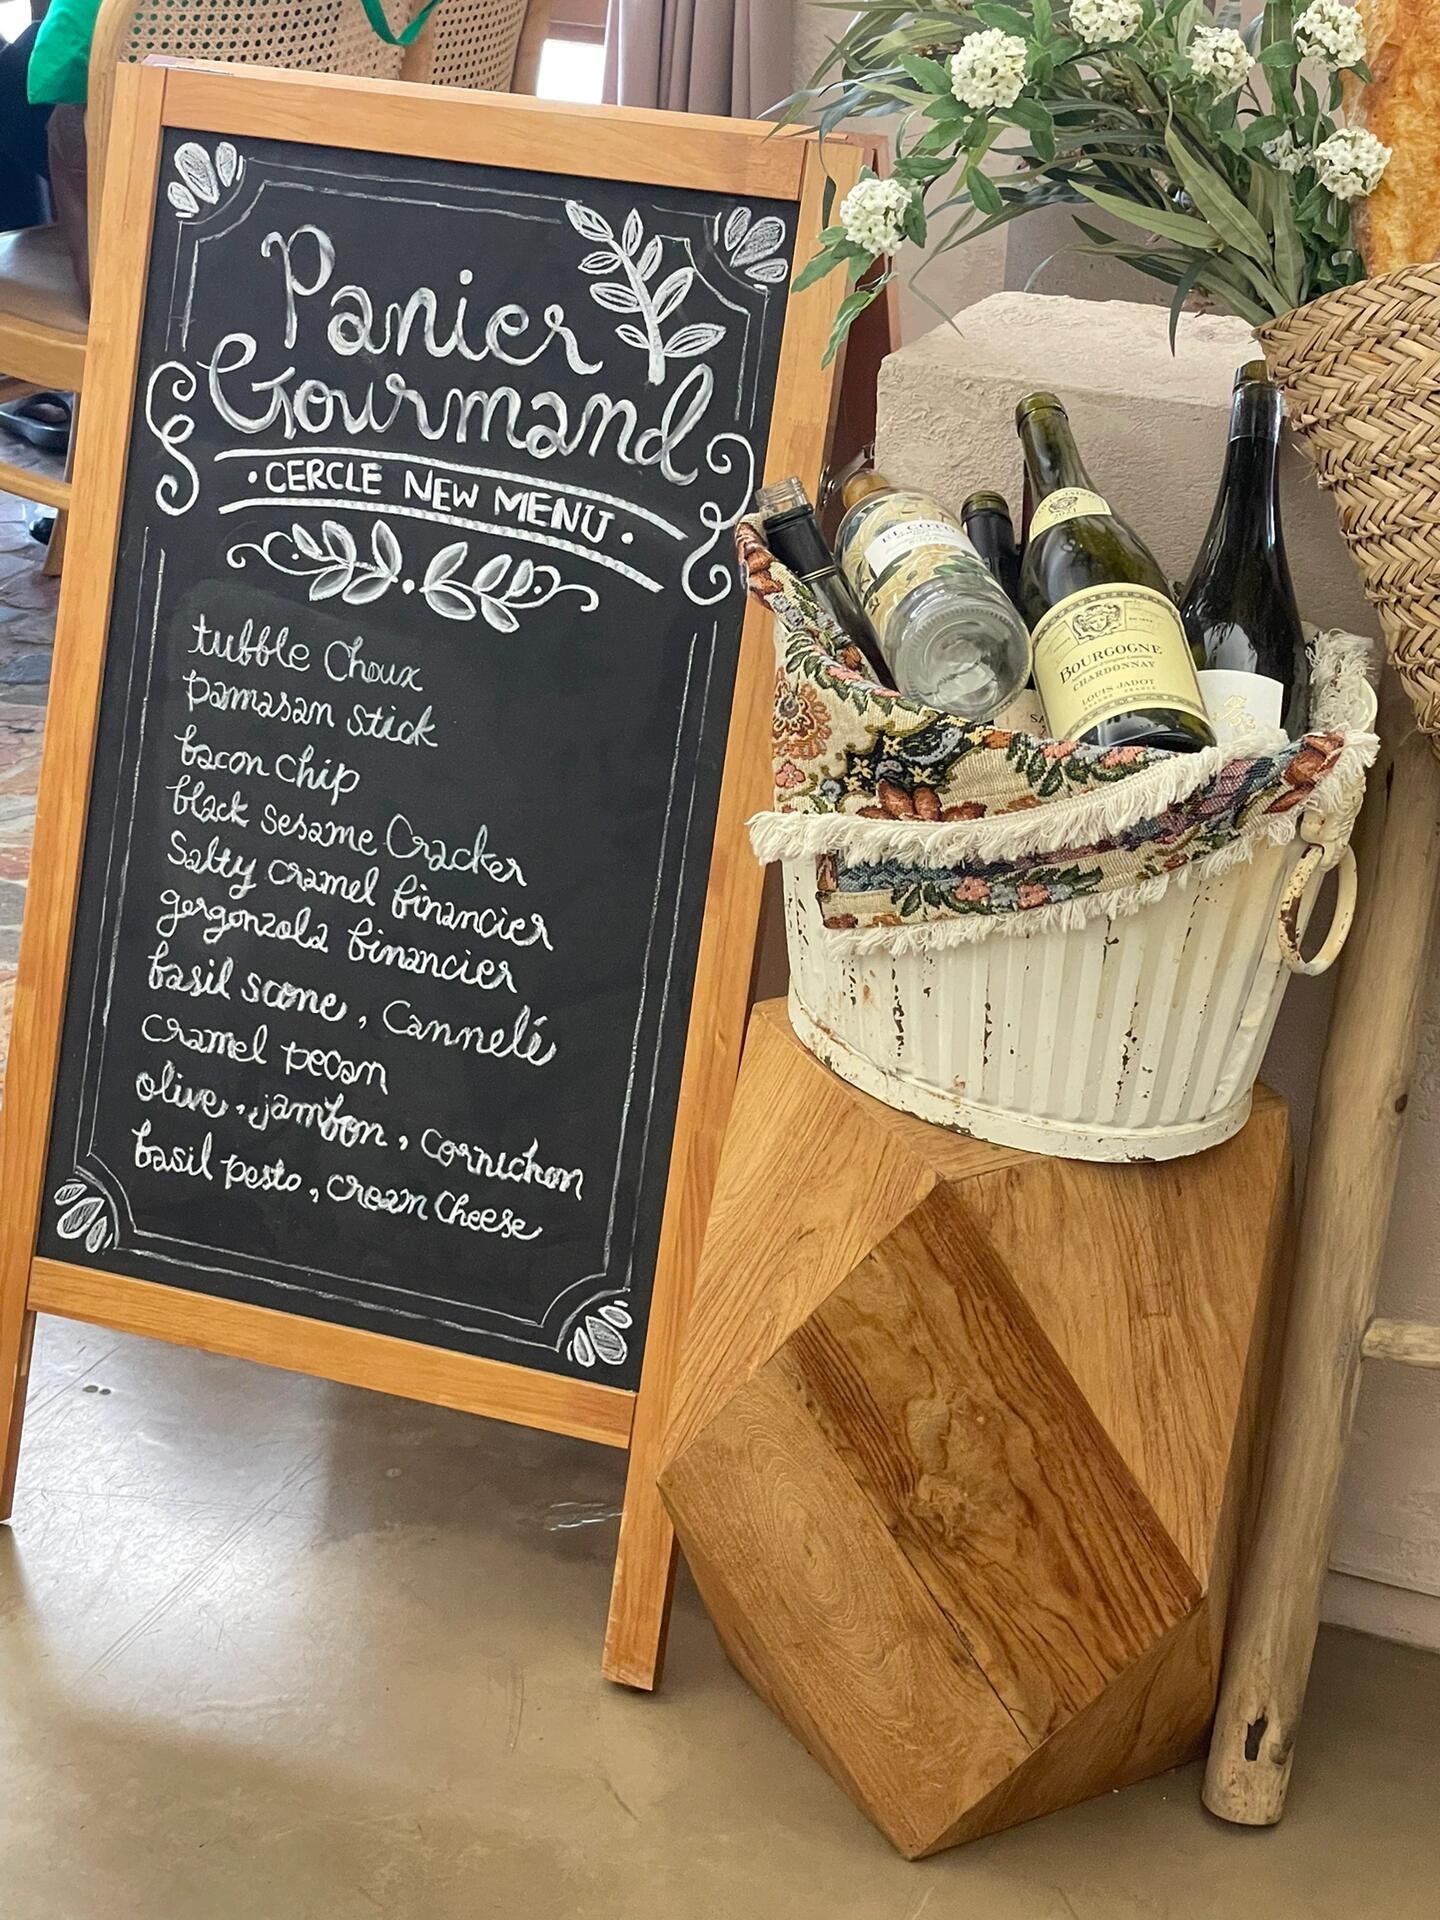 Panier
Gourmand
· CERCLE NEW MENU ·
tubble Choux
pamasan stick
bacon chip
black sesame Cracker
Salty cramel financier
gorgonzola financier
basil scone, Cannelé
cramel pecan
olive, jambon, cornichon
basil pesto, cream cheese
EL COTO
BOURGOGNE
CHARDONNAY
LOUIS JADOT